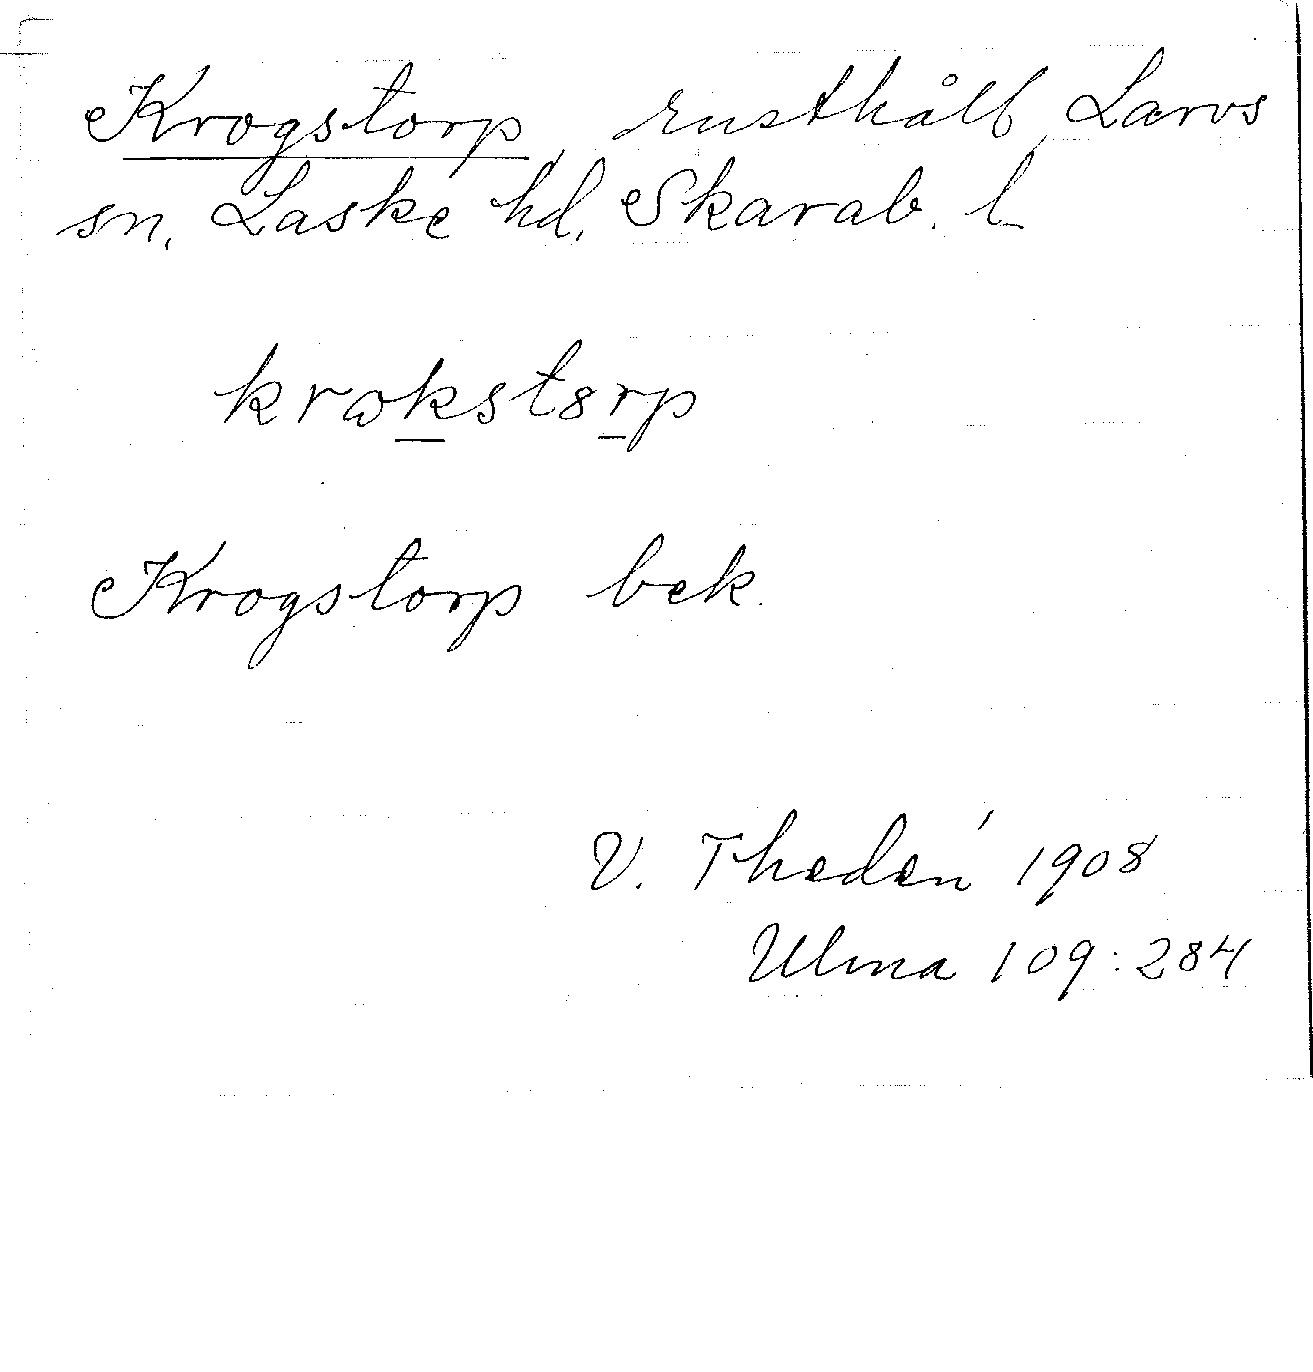 Krogstorp, rusthåll, Larvs
sn, Laske hd, Skarab. l
krωkst8rp
Krogstorp bek.
V. Thedén 1908
Ulma 109:284